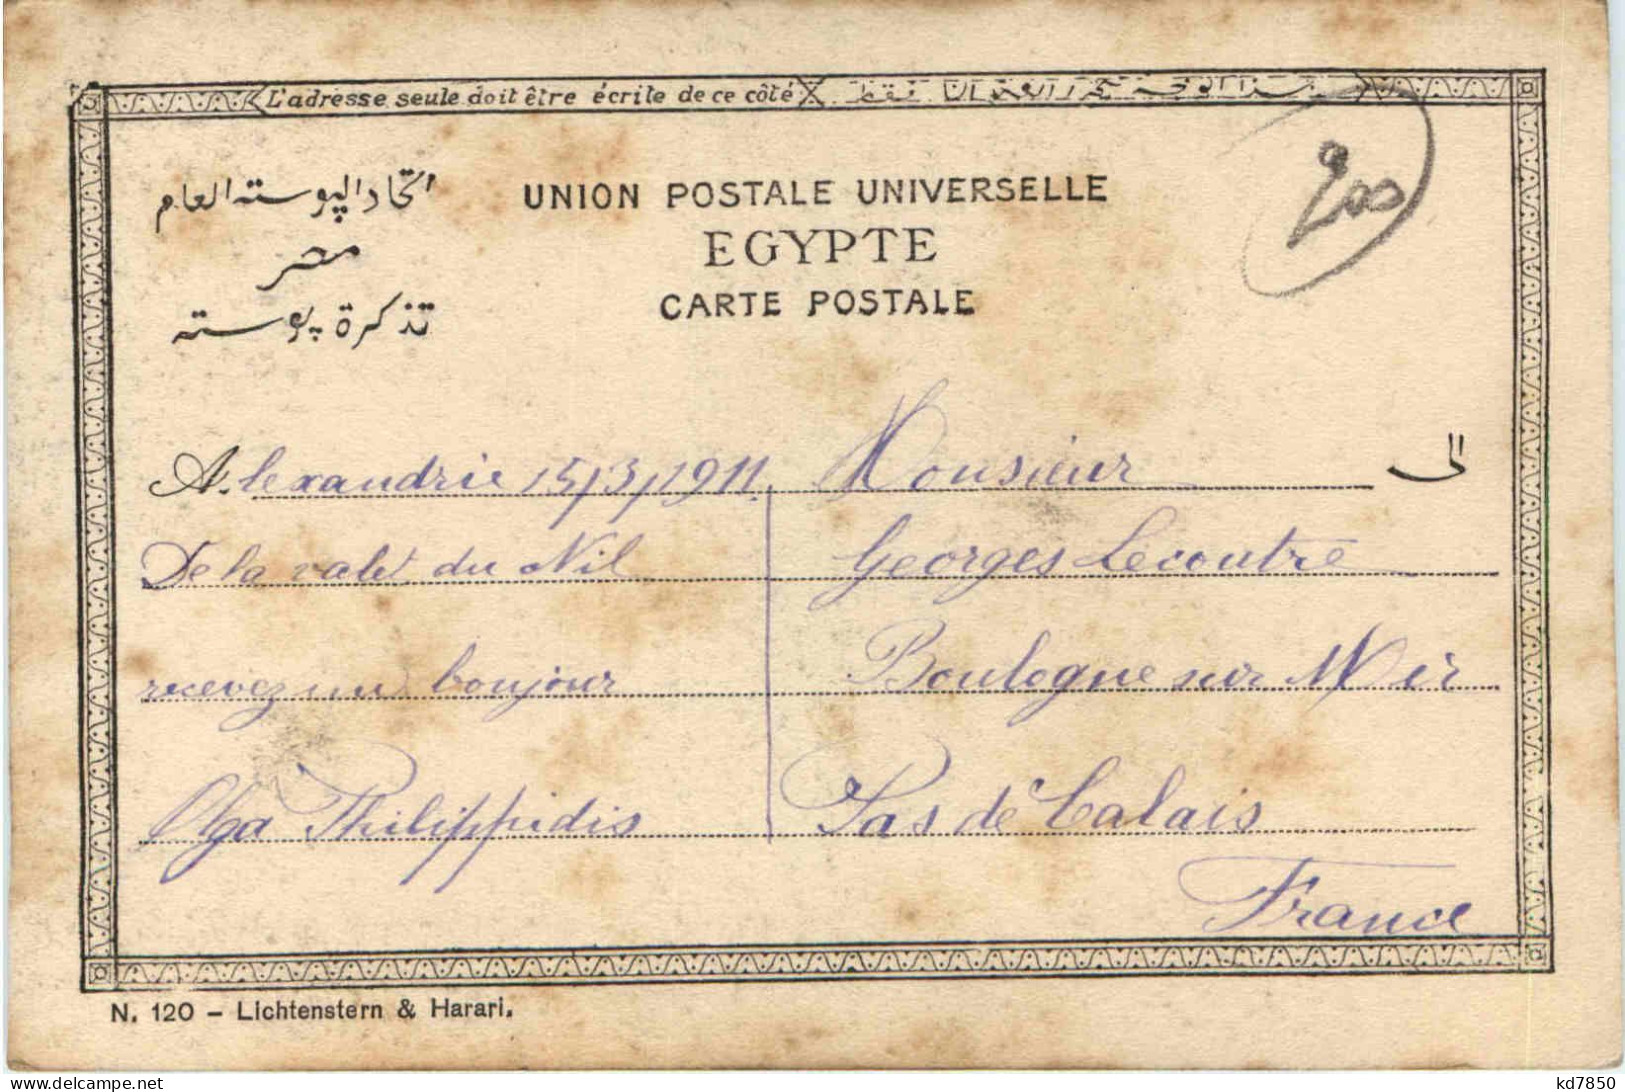 L'adresse seule doit être écrite de ce côté
اتحاد البوسته العام
مصر
تذكرة بوسته
UNION POSTALE UNIVERSELLE
EGYPTE
CARTE POSTALE
200
الى
A.lexandrie 15/3/1911.
De la valé du Nil
recevez un bonjour
Olga Philippidis
Monsieur
Georges Lecoutre
Boulogne sur Mer
Pas de Calais
France
N. 120 – Lichtenstern & Harari.
kd7850